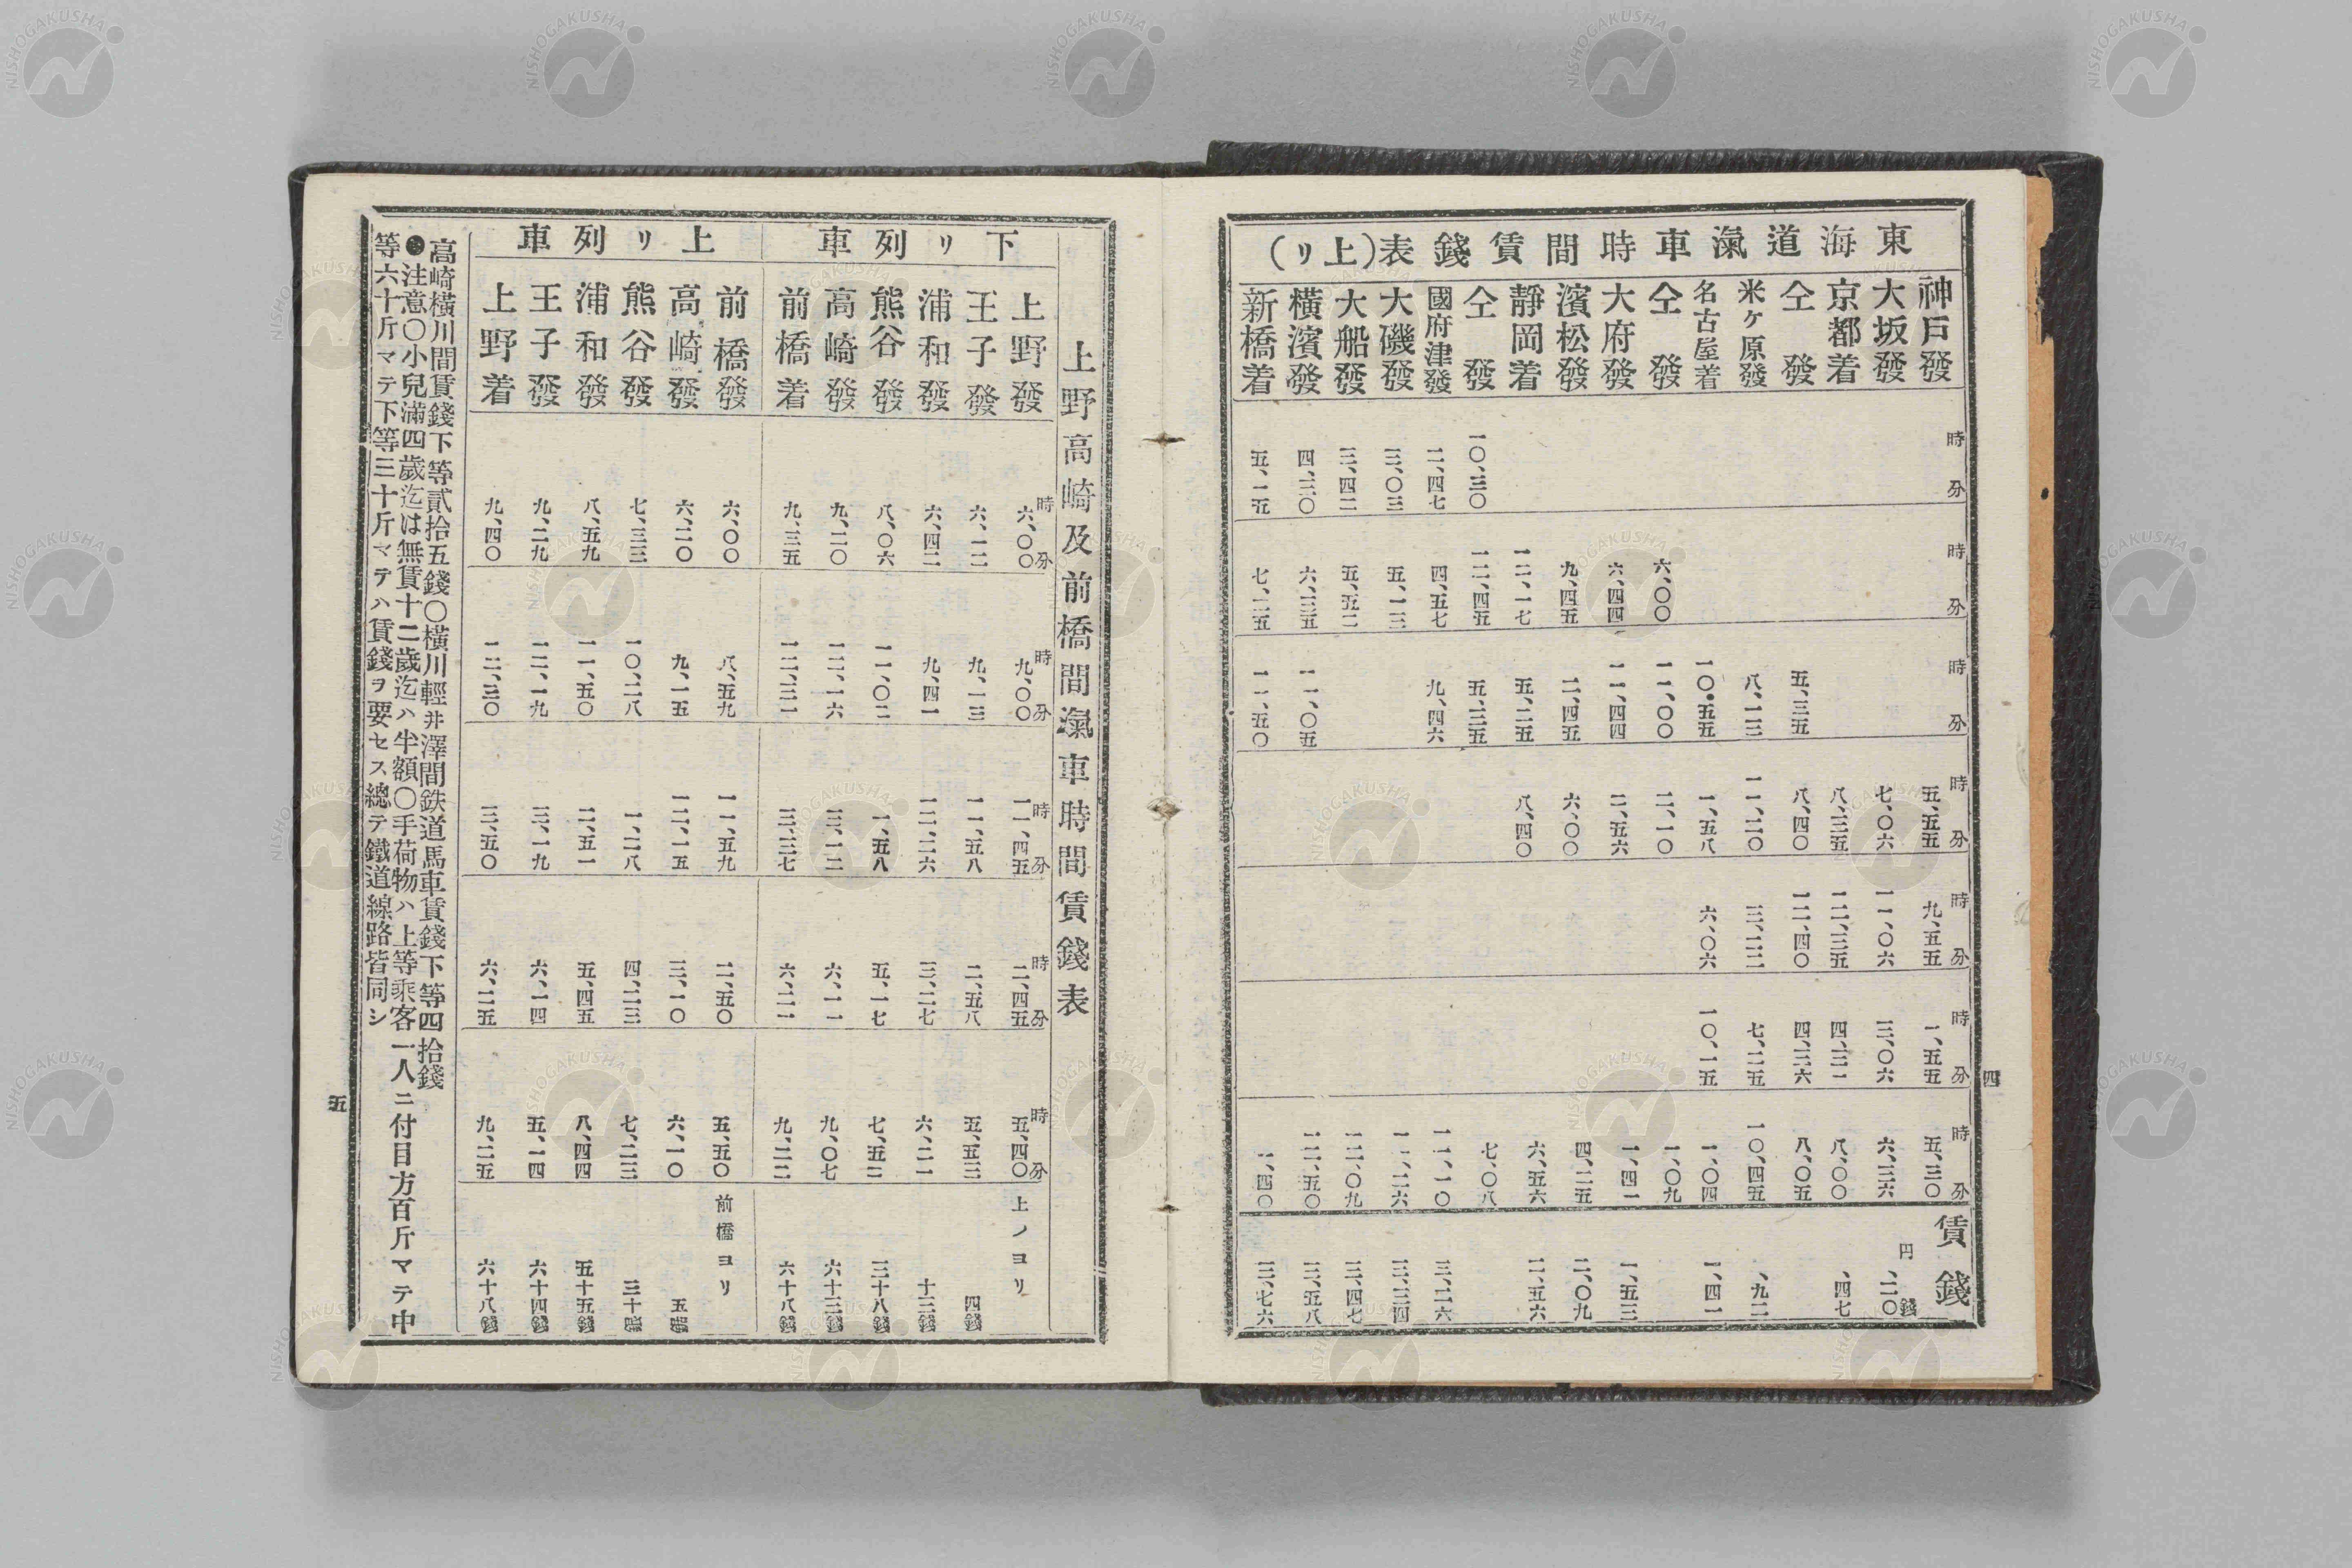 東海道滊車時間賃錢表(上リ)
時分 時分 時分 時分 時分 時分 時分 賃錢
神戸發 五、五五 九、五五 一、五五 五、三〇
円 錢
大坂發 七、〇六 一一、〇六 三、〇六 六、三六 、二〇
京都着 八、三五 一二、三五 四、三一 八、〇〇 、四七
仝發 五、三五 八、四〇 一二、四〇 四、三六 八、〇五
米ヶ原發 八、一三 一一、二〇 三、二二 七、二五 一〇、四五 、九二
名古屋着 一〇、五五 一、五八 六、〇六 一〇、一五 一、〇四 一、四一
仝發 六、〇〇 一一、〇〇 二、一〇 一、〇九
大府發 六、四四 一一、四四 二、五六 一、四一 一、五三
濱松發 九、四五 二、四五 六、〇〇 四、二五 二、〇九
靜岡着 一二、一七 五、二五 八、四〇 六、五六 二、五六
仝發 一〇、三〇 一二、四五 五、三五 七、〇八
國府津發 二、四七 四、五七 九、四六 一一、一〇 三、二六
大磯發 三、〇三 五、一三 一一、二六 三、三四
大船發 三、四二 五、五二 一二、〇九 三、四七
橫濱發 四、三〇 六、三五 一一、〇五 一二、五〇 三、五八
新橋着 五、一五 七、二五 一一、五〇 一、四〇 三、七六
四
上野高崎及前橋間滊車時間賃錢表
下リ列車
時分 時分 時分 時分 時分
上野發 六、〇〇 九、〇〇 一一、四五 二、四五 五、四〇 上ノヨリ
王子發 六、一二 九、一三 一一、五八 二、五八 五、五三 四錢
浦和發 六、四二 九、四一 一二、二六 三、二七 六、二一 十三錢
熊谷發 八、〇六 一一、〇二 一、五八 五、一七 七、五二 三十八錢
高崎發 九、二〇 一二、一六 三、一二 六、一一 九、〇七 六十三錢
前橋着 九、三五 一二、三一 三、二七 六、二一 九、二二 六十八錢
上リ列車
前橋發 六、〇〇 八、五九 一一、五九 二、五〇 五、五〇 前橋ヨリ
高崎發 六、二〇 九、一五 一二、一五 三、一〇 六、一〇 五錢
熊谷發 七、三三 一〇、二八 一、二八 四、二三 七、二三 三十錢
浦和發 八、五九 一一、五〇 二、五一 五、四五 八、四四 五十五錢
王子發 九、二九 一二、一九 三、一九 六、一四 五、一四 六十四錢
上野着 九、四〇 一二、三〇 三、五〇 六、二五 九、二五 六十八錢
高崎橫川間賃錢下等貳拾五錢〇橫川輕井澤間鉄道馬車賃錢下等四拾錢
●注意〇小兒滿四歲迄は無賃十二歲迄ハ半額〇手荷物ハ上等乘客一人ニ付目方百斤マテ中
等六十斤マテ下等三十斤マテハ賃錢ヲ要セス總テ鐵道線路皆同シ
五